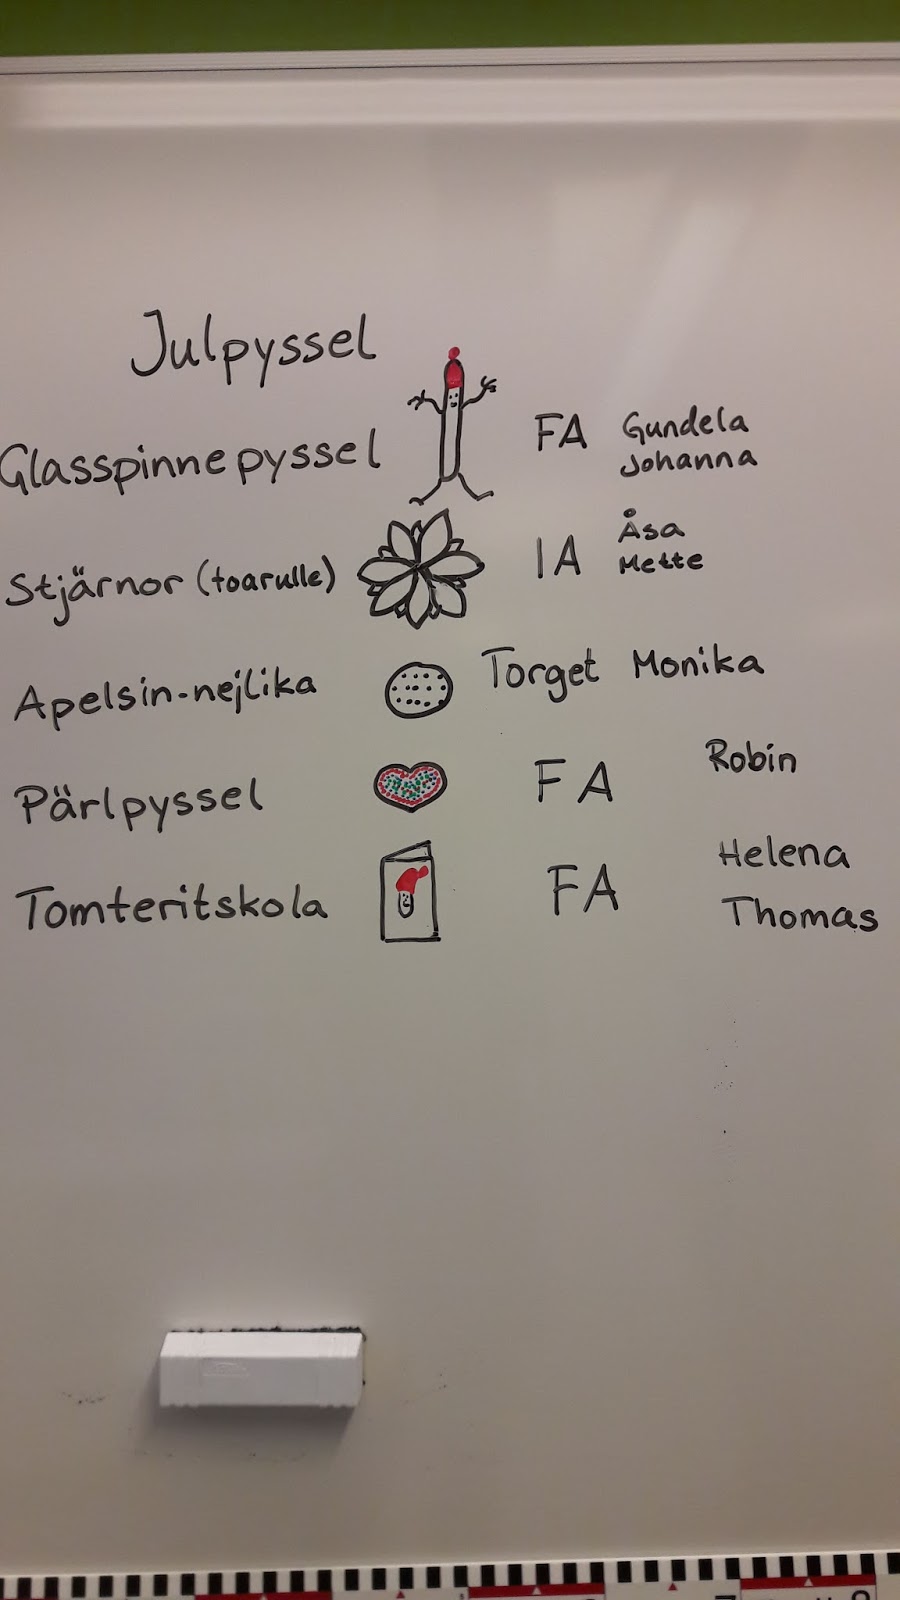 Julpyssel
Glasspinnepyssel FA Gundela
Johanna
Stjärnor (toarulle) IA Åsa
Mette
Apelsin-nejlika Torget Monika
Pärlpyssel FA Robin
Tomteritskola FA Helena
Thomas